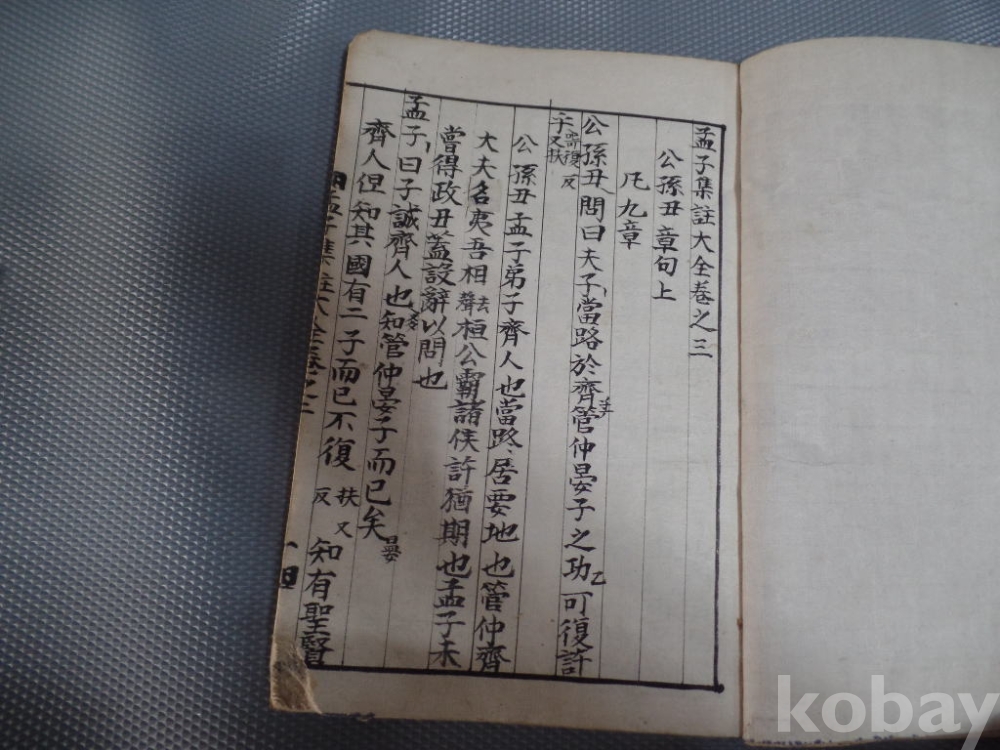 孟子集註大全卷之三
公孫丑章句上
凡九章
公孫丑問曰夫子當路於齊管仲晏子之功可復許
乎 復 扶又反
公孫丑孟子弟子齊人也當路居要地也管仲齊
大夫名夷吾相 去聲 桓公霸諸侯許猶期也孟子未
嘗得政丑蓋設辭以問也
孟子曰子誠齊人也知管仲晏子而已矣
齊人但知其國有二子而已不復 扶又反 知有聖賢
孟子集註大全卷之三
kobay